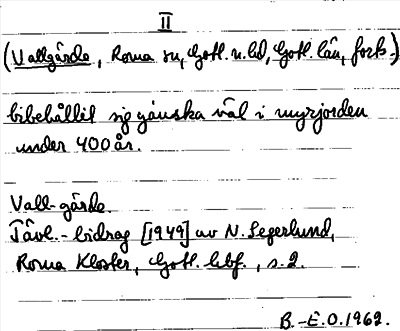 II
(Vallgärde, Roma sn, Gotl. n. hd, Gotl. län, forts.)
bibehållit sig gánska väl i myrjorden
under 400 år.
Vall-gärde.
Tävl.-bidrag [1949] av N. Segerlund,
Roma Kloster, Gotl. , s. 2.
B.-E.O. 1962.